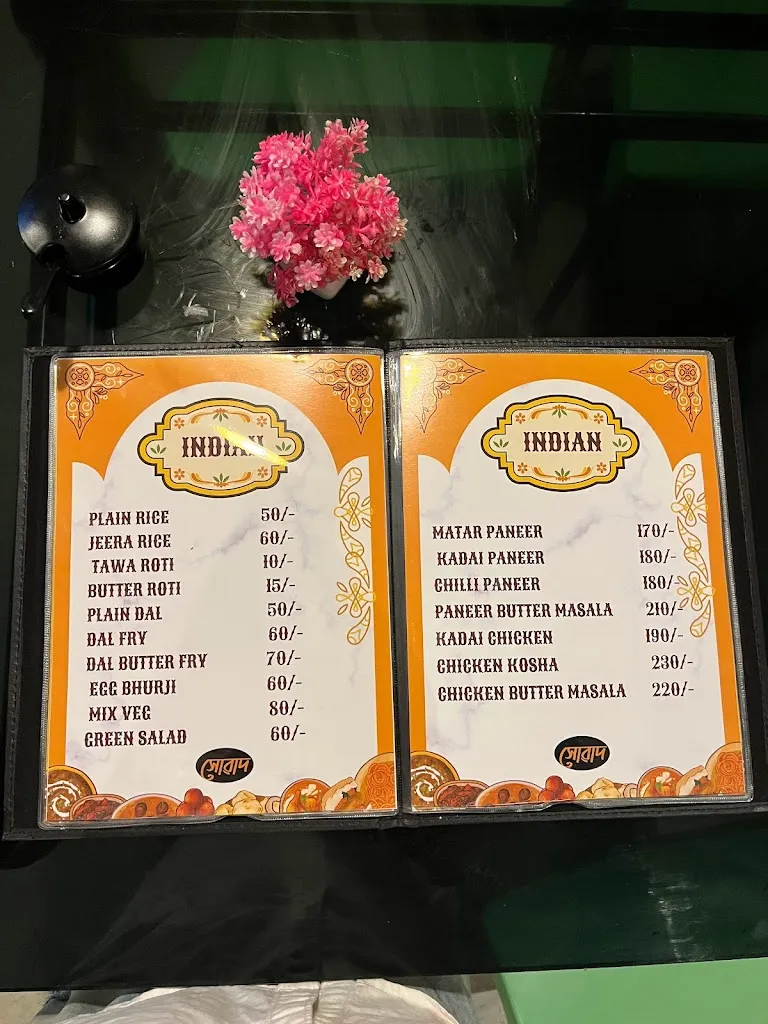 INDIAN
PLAIN RICE 50/-
JEERA RICE 60/-
TAWA ROTI 10/-
BUTTER ROTI 15/-
PLAIN DAL 50/-
DAL FRY 60/-
DAL BUTTER FRY 70/-
EGG BHURJI 60/-
MIX VEG 80/-
GREEN SALAD 60/-
সোবাদ
INDIAN
MATAR PANEER 170/-
KADAI PANEER 180/-
CHILLI PANEER 180/-
PANEER BUTTER MASALA 210/-
KADAI CHICKEN 190/-
CHICKEN KOSHA 230/-
CHICKEN BUTTER MASALA 220/-
সোবাদ